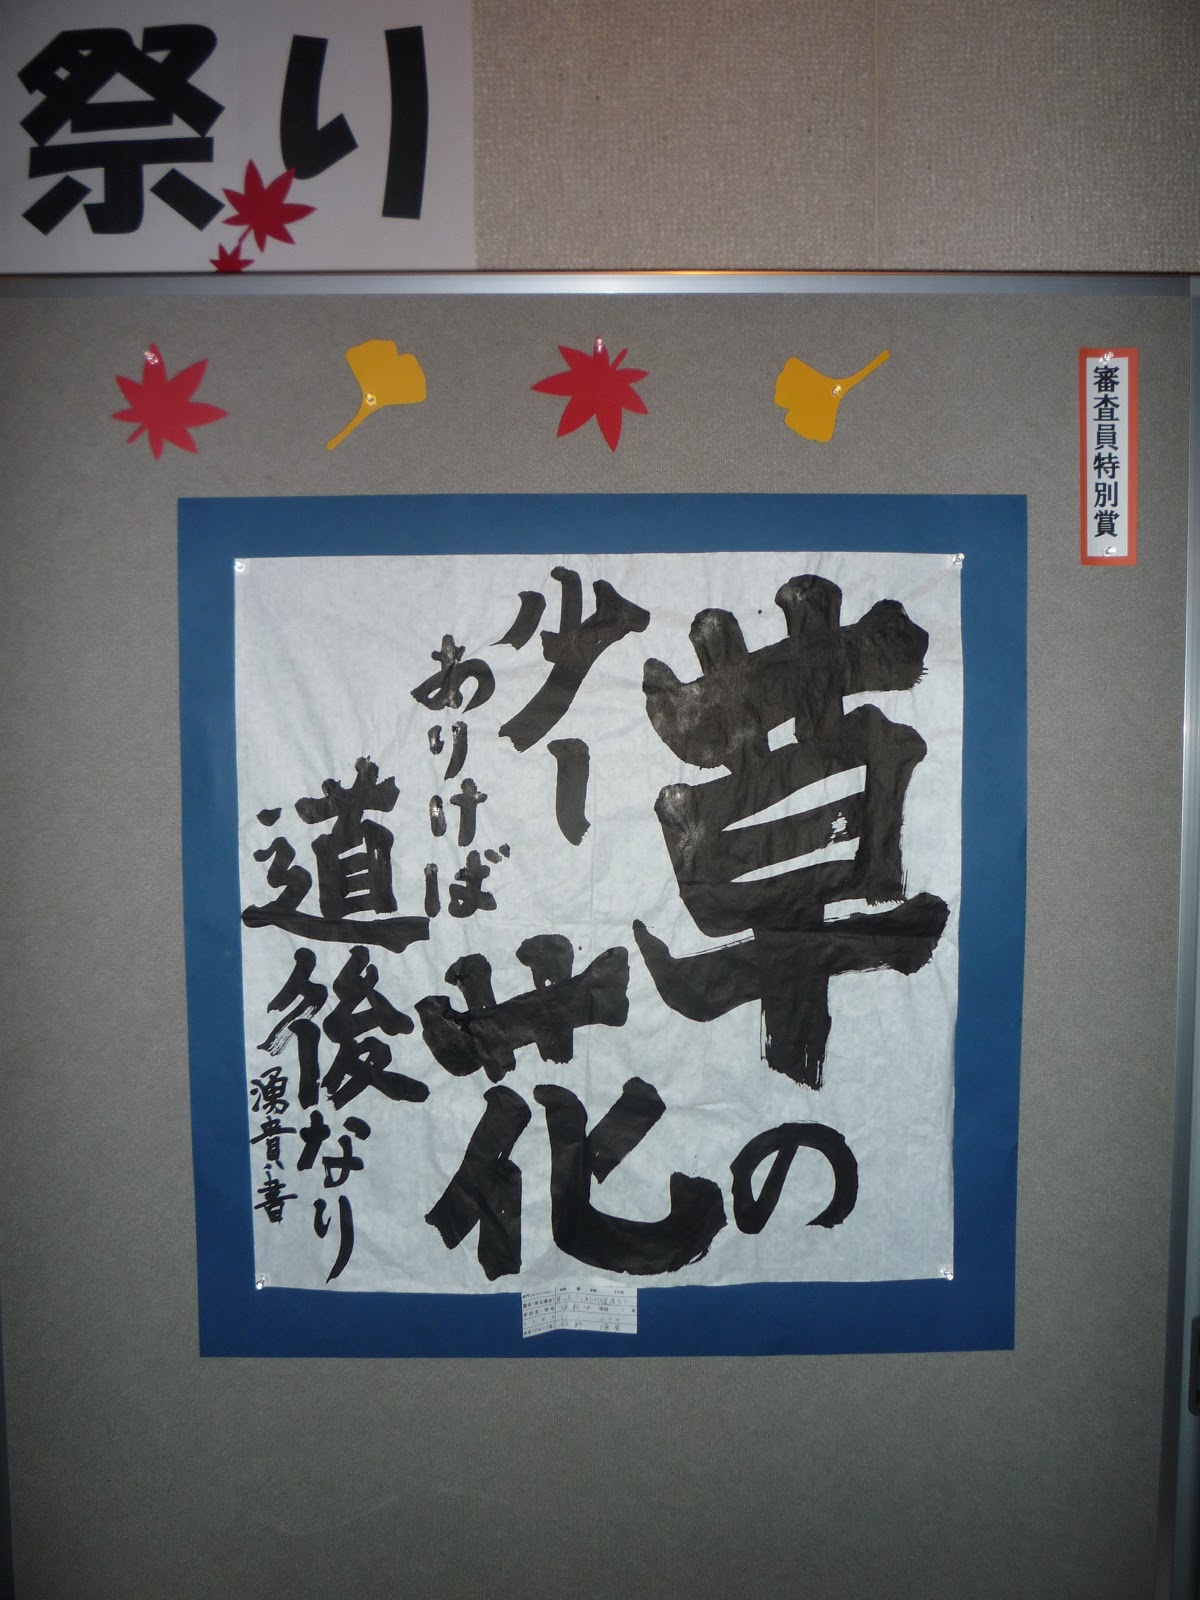 祭り
審査員特別賞
草の
少し花
ありけば
道後なり
湧貴書